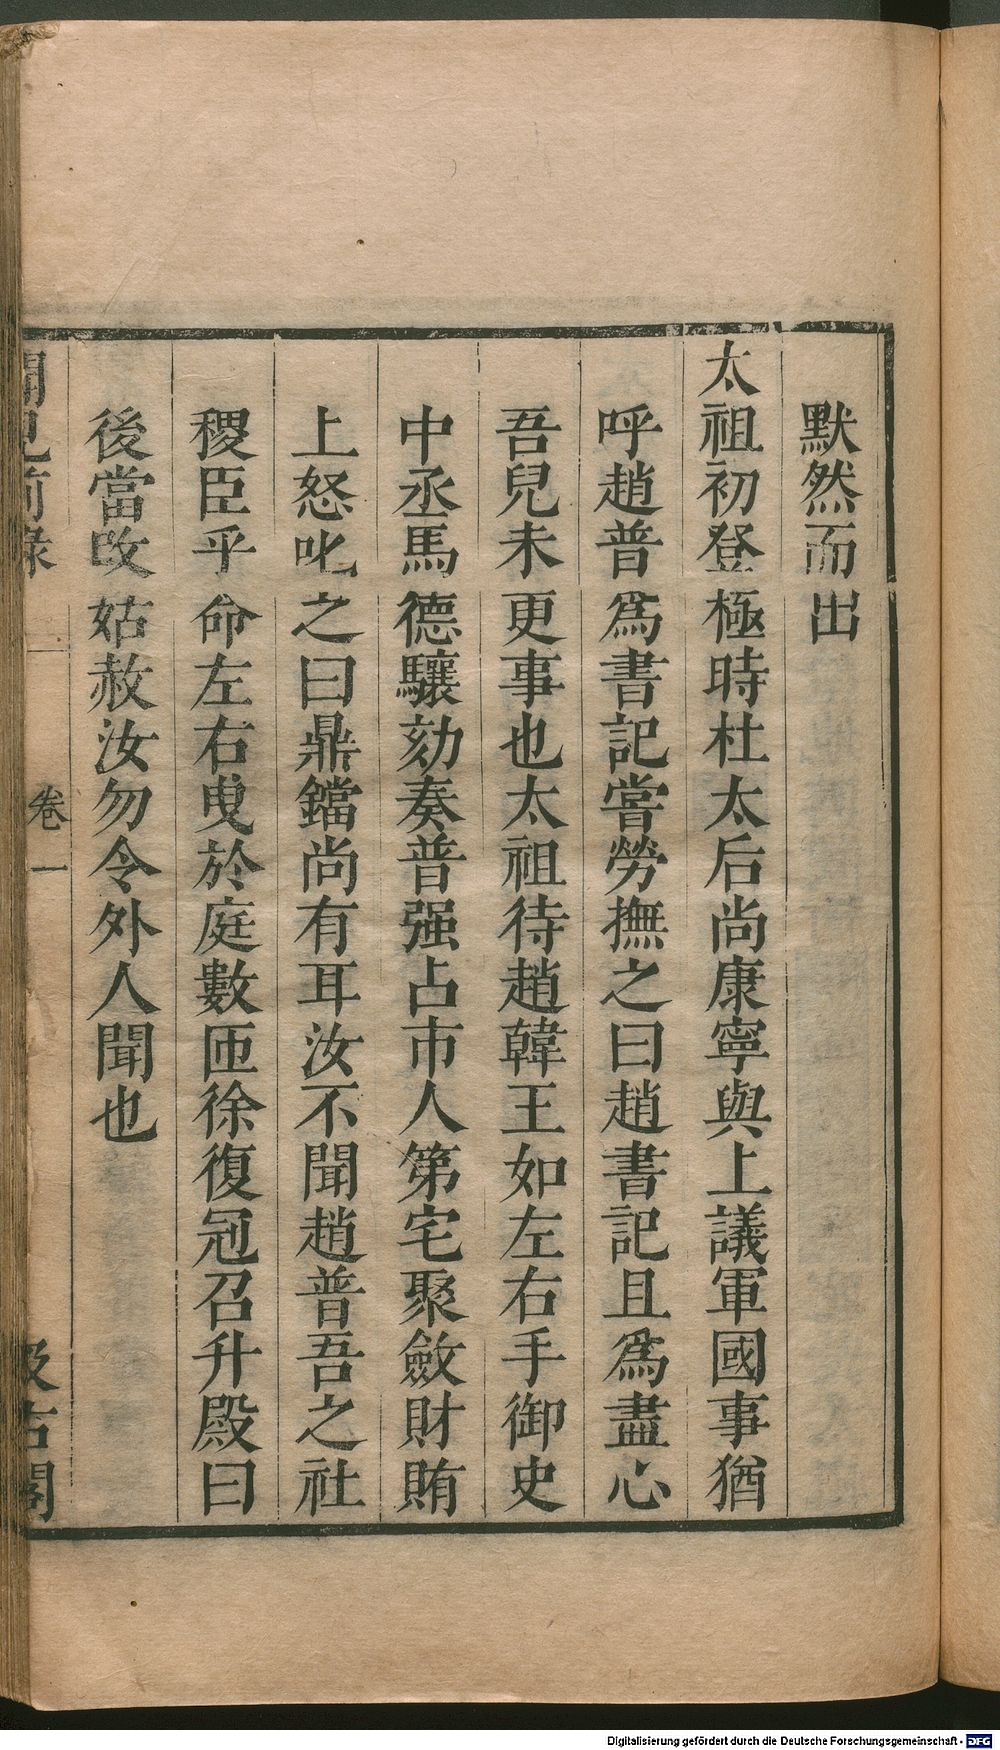 默然而出
太祖初登極時杜太后尚康寧與上議軍國事猶
呼趙普爲書記嘗勞撫之曰趙書記且爲盡心
吾兒未更事也太祖待趙韓王如左右手御史
中丞馬德驤劾奏普强占市人第宅聚斂財賄
上怒叱之曰鼎鐺尚有耳汝不聞趙普吾之社
稷臣乎命左右曳於庭數匝徐復冠召升殿曰
後當改姑赦汝勿令外人聞也
聞見前錄 卷一 汲古閣
Digitalisierung gefördert durch die Deutsche Forschungsgemeinschaft - DFG